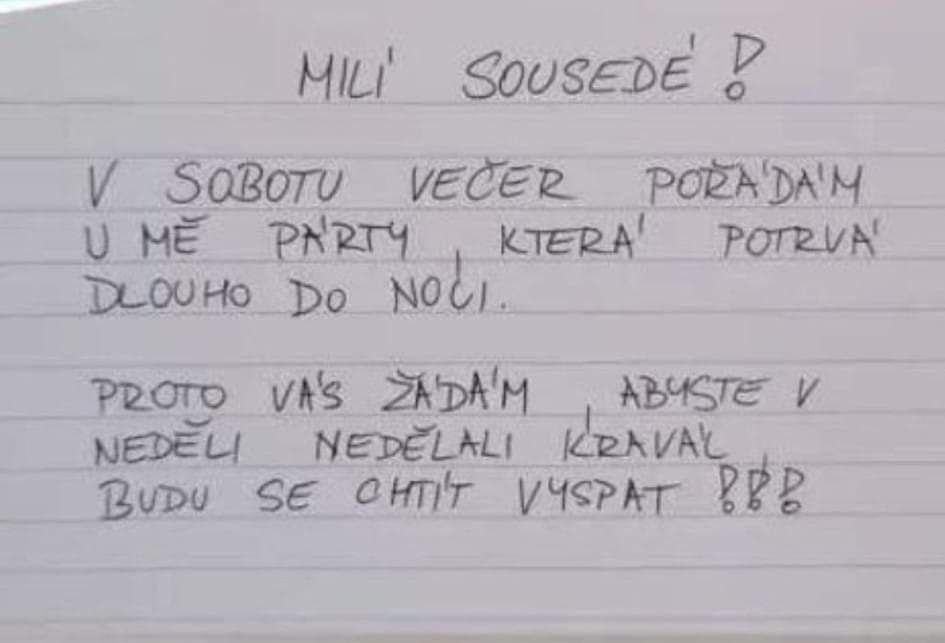 MILÍ SOUSEDÉ!
V SOBOTU VEČER POŘÁDÁM
U MĚ PÁRTY, KTERÁ POTRVÁ
DLOUHO DO NOCI.
PROTO VÁS ŽÁDÁM, ABYSTE V
NEDĚLI NEDĚLALI KRAVÁL,
BUDU SE CHTÍT VYSPAT!!!